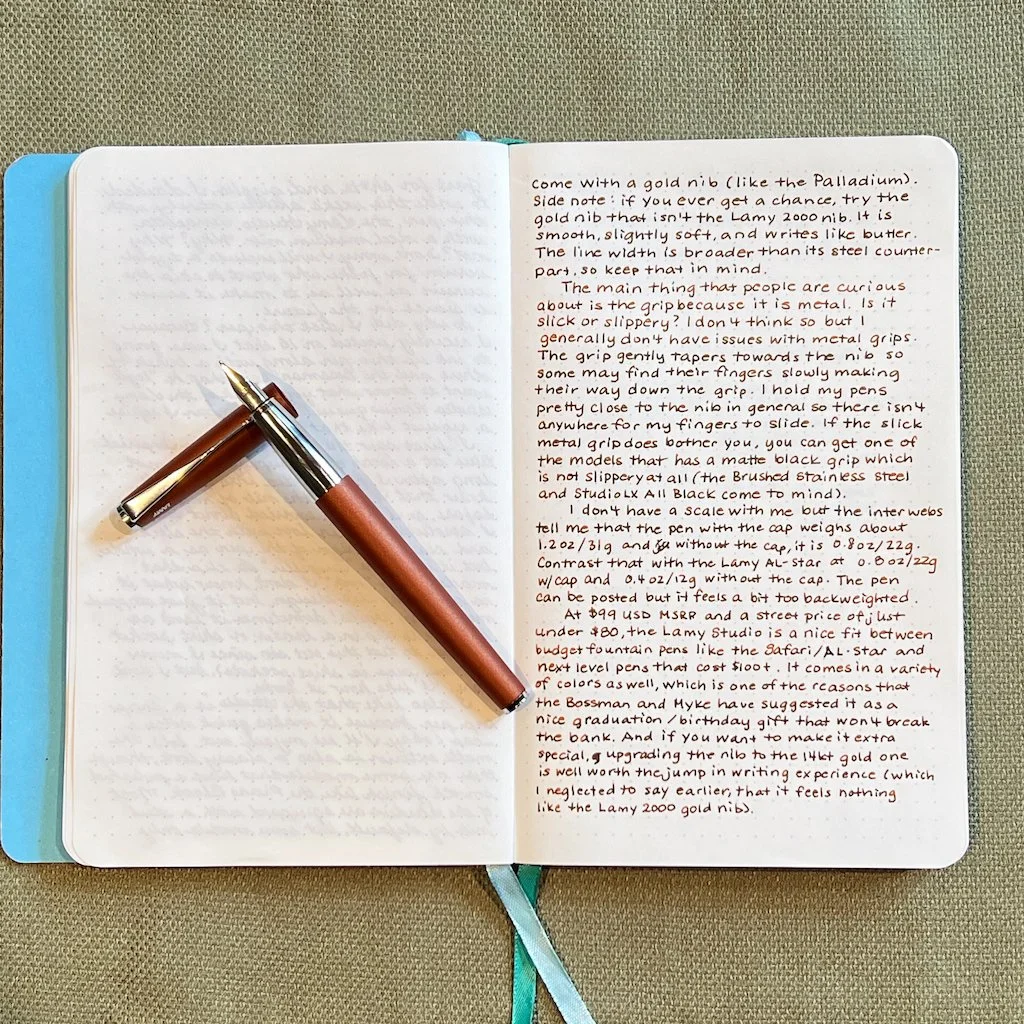 LAMY
come with a gold nib (like the Palladium).
Side note: if you ever get a chance, try the
gold nib that isn't the Lamy 2000 nib. It is
smooth, slightly soft, and writes like butter.
The line width is broader than its steel counter-
part, so keep that in mind.
The main thing that people are curious
about is the grip because it is metal. Is it
slick or slippery? I don't think so but I
generally don't have issues with metal grips.
The grip gently tapers towards the nib so
some may find their fingers slowly making
their way down the grip. I hold my pens
pretty close to the nib in general so there isn't
anywhere for my fingers to slide. If the slick
metal grip does bother you, you can get one of
the models that has a matte black grip which
is not slippery at all (the Brushed Stainless Steel
and Studio LX All Black come to mind).
I don't have a scale with me but the interwebs
tell me that the pen with the cap weighs about
1.2oz/31g and without the cap, it is 0.8oz/22g.
Contrast that with the Lamy AL-Star at 0.8oz/22g
w/cap and 0.4oz/12g without the cap. The pen
can be posted but it feels a bit too backweighted.
At $99 USD MSRP and a street price of just
under $80, the Lamy Studio is a nice fit between
budget fountain pens like the Safari/AL-Star and
next level pens that cost $100+. It comes in a variety
of colors as well, which is one of the reasons that
the Bossman and Myke have suggested it as a
nice graduation/birthday gift that won't break
the bank. And if you want to make it extra
special, upgrading the nib to the 14kt gold one
is well worth the jump in writing experience (which
I neglected to say earlier, that it feels nothing
like the Lamy 2000 gold nib).